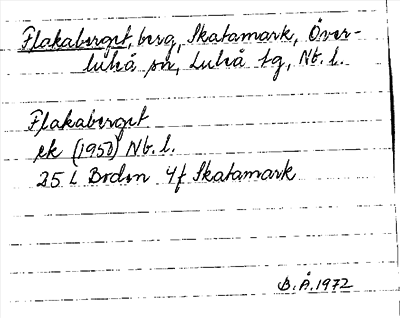 Flakaberget, berg, Skatamark, Över-
luleå sn, Luleå tg, Nb. l.
Flakaberget
ek (1950) Nb. l.
25 L Boden 4f Skatamark
B. Å. 1972